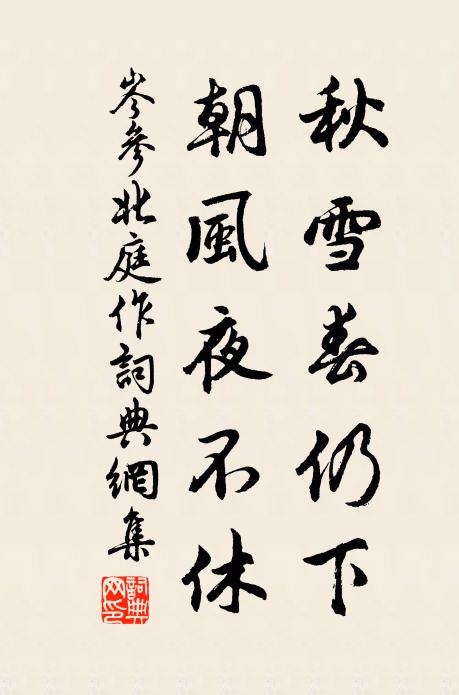 秋雪春仍下
朝風夜不休
岑參北庭作詞典網集
詞典網印